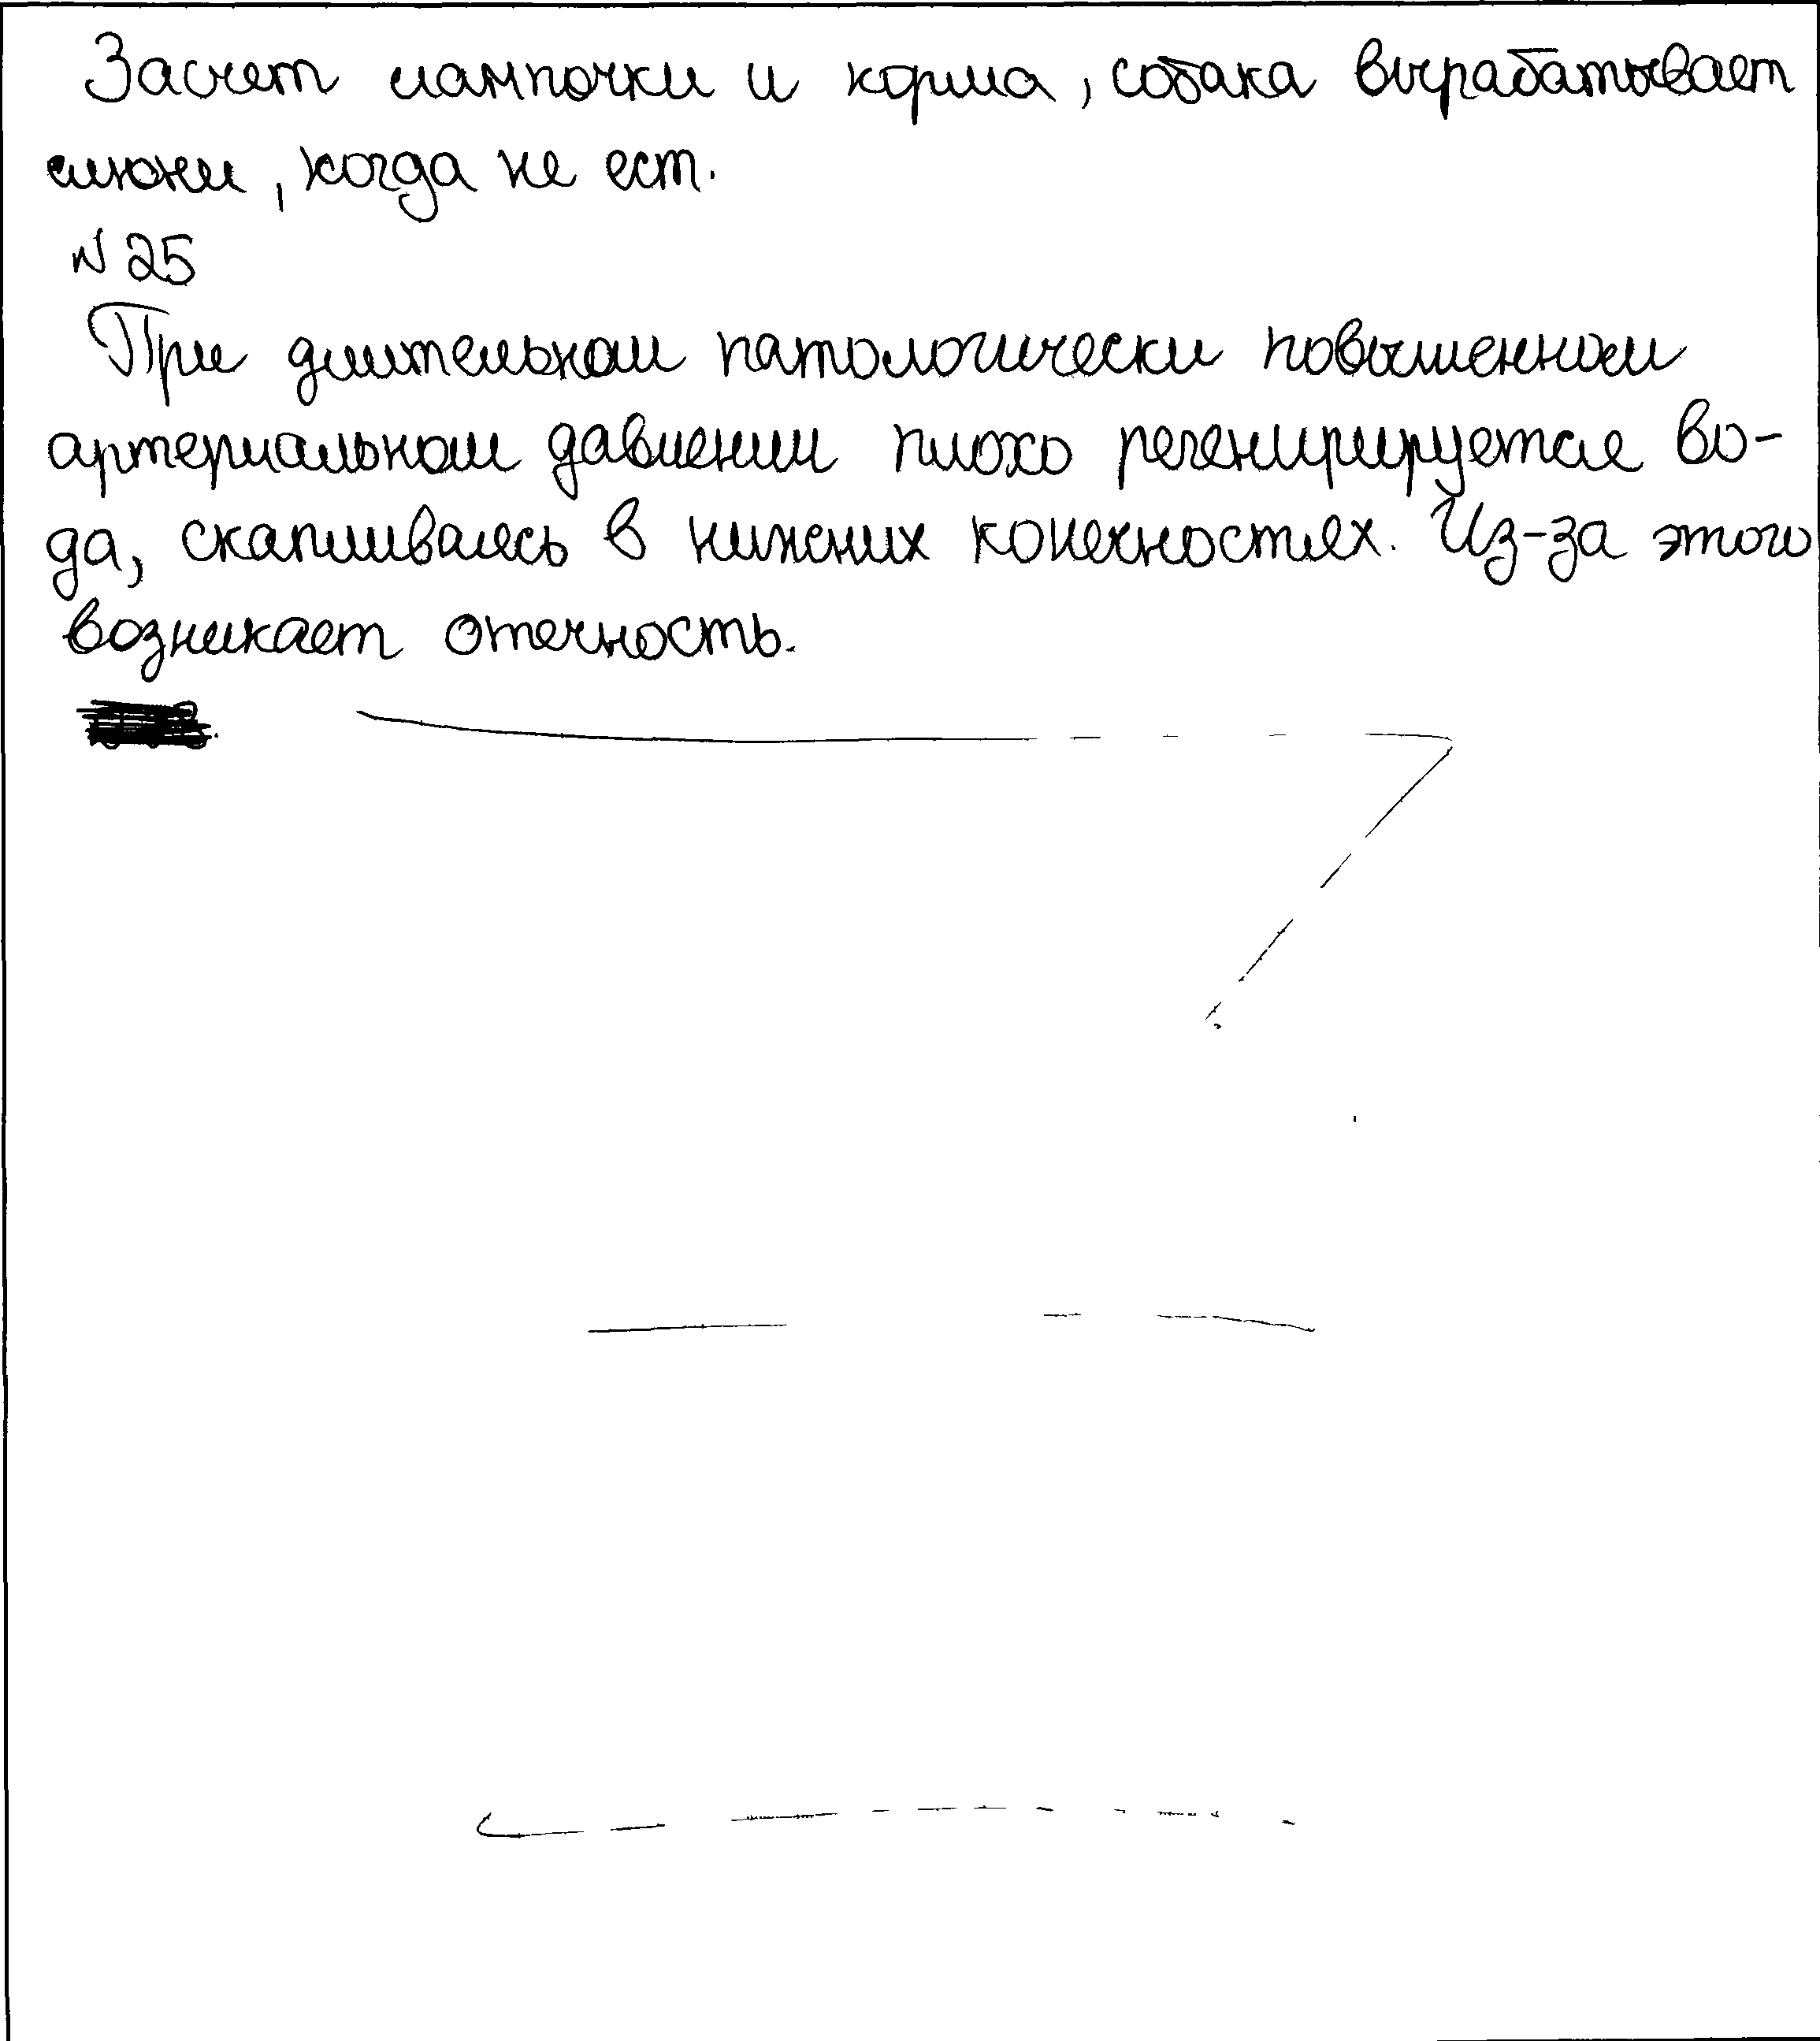 Засчет лампочки и корма, собака вырабатывает
слюни, когда не ест.
№ 25
При длительном патологически повышенном
артериальном давлении плохо регенирируется во-
да, скапливаясь в нижних конечностях. Из-за этого
возникает отечность.